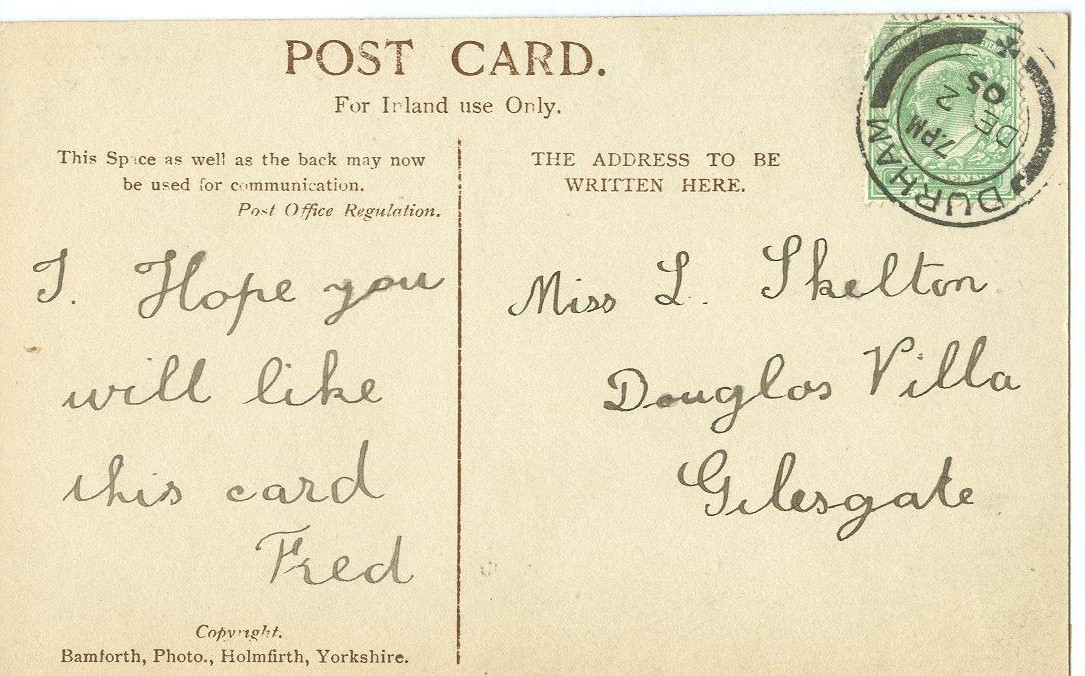 POST CARD.
For Inland use Only.
This Space as well as the back may now
be used for communication.
Post Office Regulation.
THE ADDRESS TO BE
WRITTEN HERE.
DURHAM
7.PM
DE 2
05
I. Hope you
will like
this card
Fred
Miss L. Skelton
Douglas Villa
Gilesgate
Copyright.
Bamforth, Photo., Holmfirth, Yorkshire.